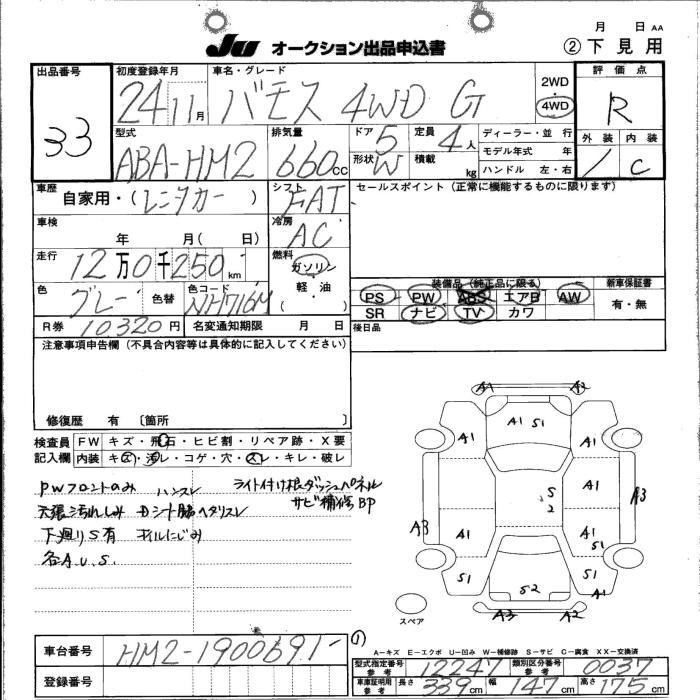 月 日 AA
JU オークション出品申込書
② 下見用
出品番号
33
初度登録年月
24 11月
車名・グレード
バモス 4WD G
2WD
・
4WD
評価点
R
外装 内装
/ C
型式
ABA-HM2
排気量
660cc
ドア 5
形状 W
定員 4人
積載 kg
ディーラー・並 行
モデル年式 年
ハンドル 左・右
車歴
自家用・(レンタカー)
シフト
FAT
セールスポイント(正常に機能するものに限ります)
車検
年 月( 日)
冷房
AC
走行
12万0千250km
燃料
ガソリン
軽・油
( )
色
グレー
色替
色コード
NH716M
装備品(純正品に限る)
PS PW ABS エアB AW
SR ナビ TV カワ
新車保証書
有・無
R券 10320円
名変通知期限 月 日
後日品
注意事項申告欄(不具合内容等は具体的に記入してください)
修復歴 有 〔箇所 〕
検査員
記入欄
FW キズ・飛石・ヒビ割・リペア跡・X要
内装 キズ・汚レ・コゲ・穴・スレ・キレ・破レ
PWフロントのみ ハンスレ ライト付け根ダッシュパネル
サビ補修BP
天張汚れしみ Dシート脇ヘタリスレ
下廻りS有 オイルにじみ
各A.U.S.
A1 A2
A1 S1
A1 A1
S
2
A1 A1
A3 A3
A1 A1
S1
S1 S1
S2
A1 A1
A3 A2
スペア
①
A-キズ E-エクボ U-凹み W-補修跡 S-サビ C-腐食 XX-交換済
車台番号
HM2-1900691
登録番号
型式指定番号
参考
12247
類別区分番号
参考
0037
車庫証明用
参考
長さ 339cm 幅 147cm 高さ 175cm